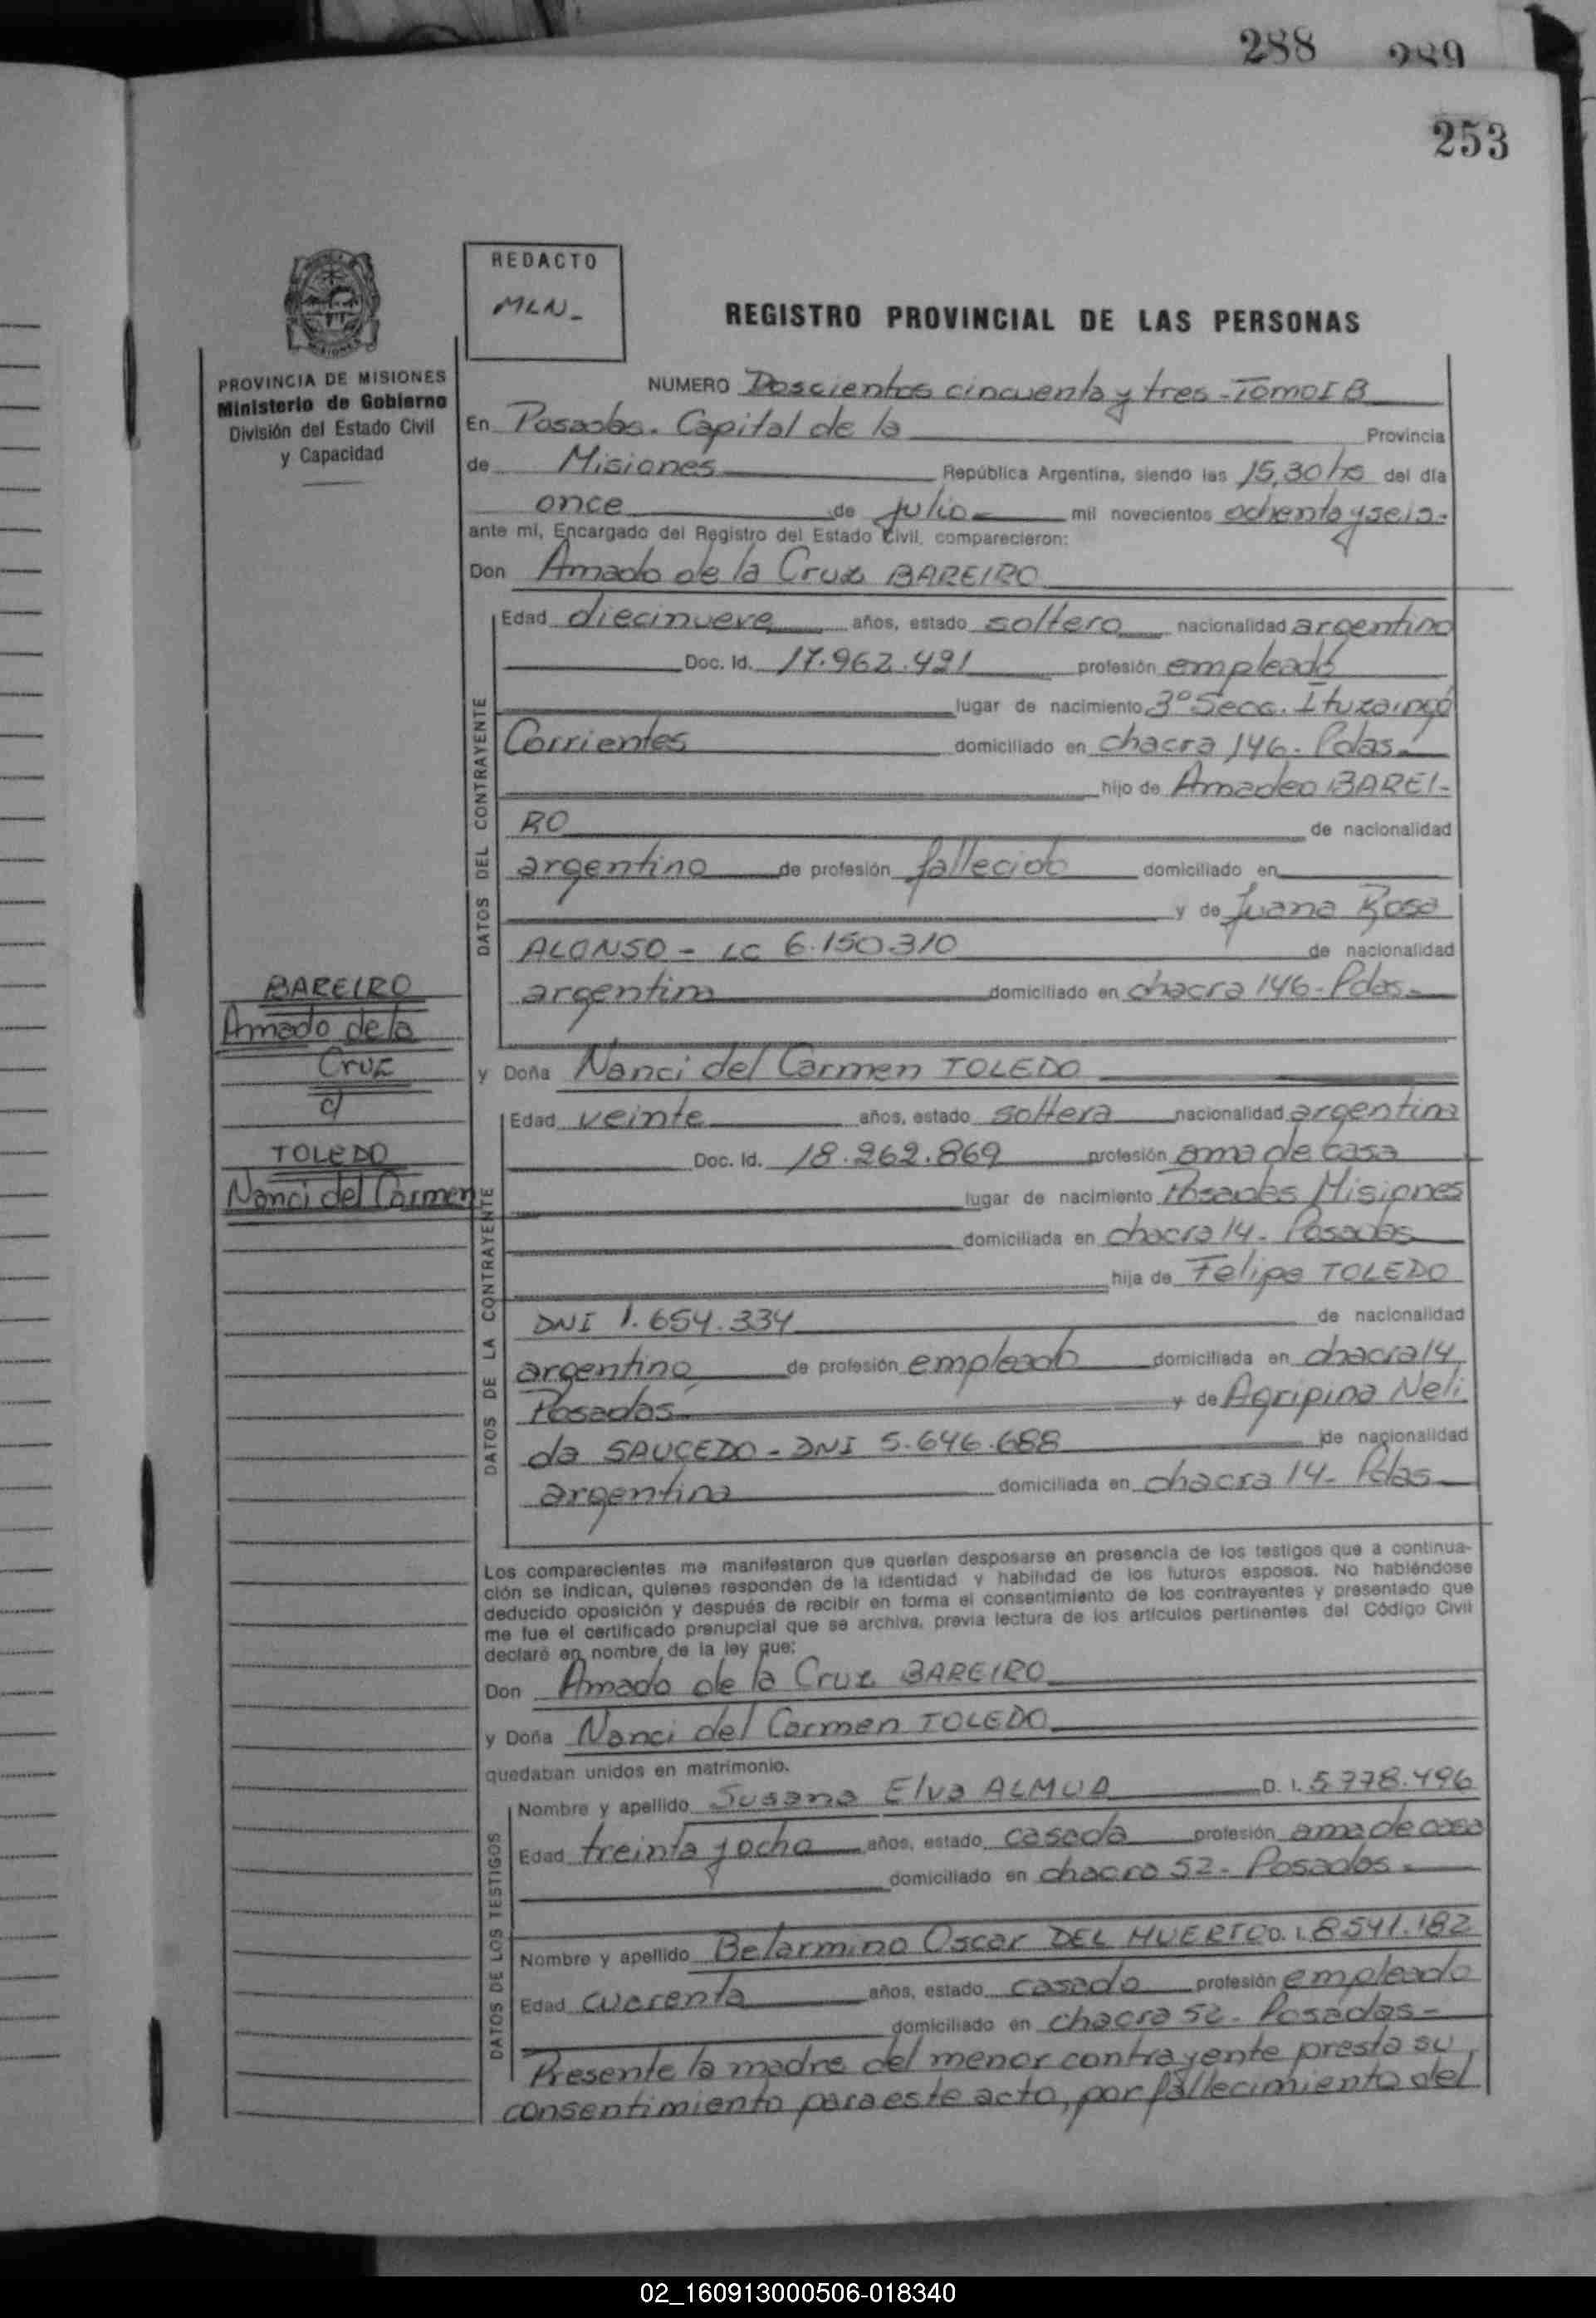 288 289
253
REDACTO
MLN-
REGISTRO PROVINCIAL DE LAS PERSONAS
PROVINCIA DE MISIONES
Ministerio de Gobierno
División del Estado Civil
y Capacidad
NUMERO Doscientos cincuenta y tres - Tomo I B
En Posadas. Capital de la Provincia
de Misiones República Argentina, siendo las 15,30 hs del día
once de julio mil novecientos ochenta y seis.
ante mí, Encargado del Registro del Estado Civil, comparecieron:
Don Amado de la Cruz BAREIRO
DATOS DEL CONTRAYENTE
Edad diecinueve años, estado soltero nacionalidad argentino
Doc. Id. 17.962.491 profesión empleado
lugar de nacimiento 3º Secc. Ituzaingó
Corrientes domiciliado en chacra 146. Pdas.
hijo de Amadeo BAREI-
RO de nacionalidad
argentino de profesión fallecido domiciliado en
y de Juana Rosa
ALONSO - LC 6.150.310 de nacionalidad
argentina domiciliado en chacra 146- Pdas.
BAREIRO
Amado de la
Cruz
c/
TOLEDO
Nanci del Carmen
y Doña Nanci del Carmen TOLEDO
DATOS DE LA CONTRAYENTE
Edad veinte años, estado soltera nacionalidad argentina
Doc. Id. 18.262.869 profesión ama de casa
lugar de nacimiento Posadas Misiones
domiciliada en chacra 14- Posadas
hija de Felipe TOLEDO
DNI 1.654.334 de nacionalidad
argentino de profesión empleado domiciliada en chacra 14
Posadas y de Agripina Neli
da SAUCEDO - DNI 5.646.688 de nacionalidad
argentina domiciliada en chacra 14- Pdas
Los comparecientes me manifestaron que querían desposarse en presencia de los testigos que a continua-
ción se indican, quienes responden de la identidad y habilidad de los futuros esposos. No habiéndose
deducido oposición y después de recibir en forma el consentimiento de los contrayentes y presentado que
me fue el certificado prenupcial que se archiva, previa lectura de los artículos pertinentes del Código Civil
declaré en nombre de la ley que:
Don Amado de la Cruz BAREIRO
y Doña Nanci del Carmen TOLEDO
quedaban unidos en matrimonio.
DATOS DE LOS TESTIGOS
Nombre y apellido Susana Elva ALMUA D. I. 5.778.496
Edad treinta y ocho años, estado casada profesión ama de casa
domiciliado en chacra 52- Posadas.
Nombre y apellido Belarmino Oscar DEL HUERTO D. I. 8541.182
Edad cuarenta años, estado casado profesión empleado
domiciliado en chacra 52- Posadas-
Presente la madre del menor contrayente presta su
consentimiento para este acto, por fallecimiento del
02_160913000506-018340